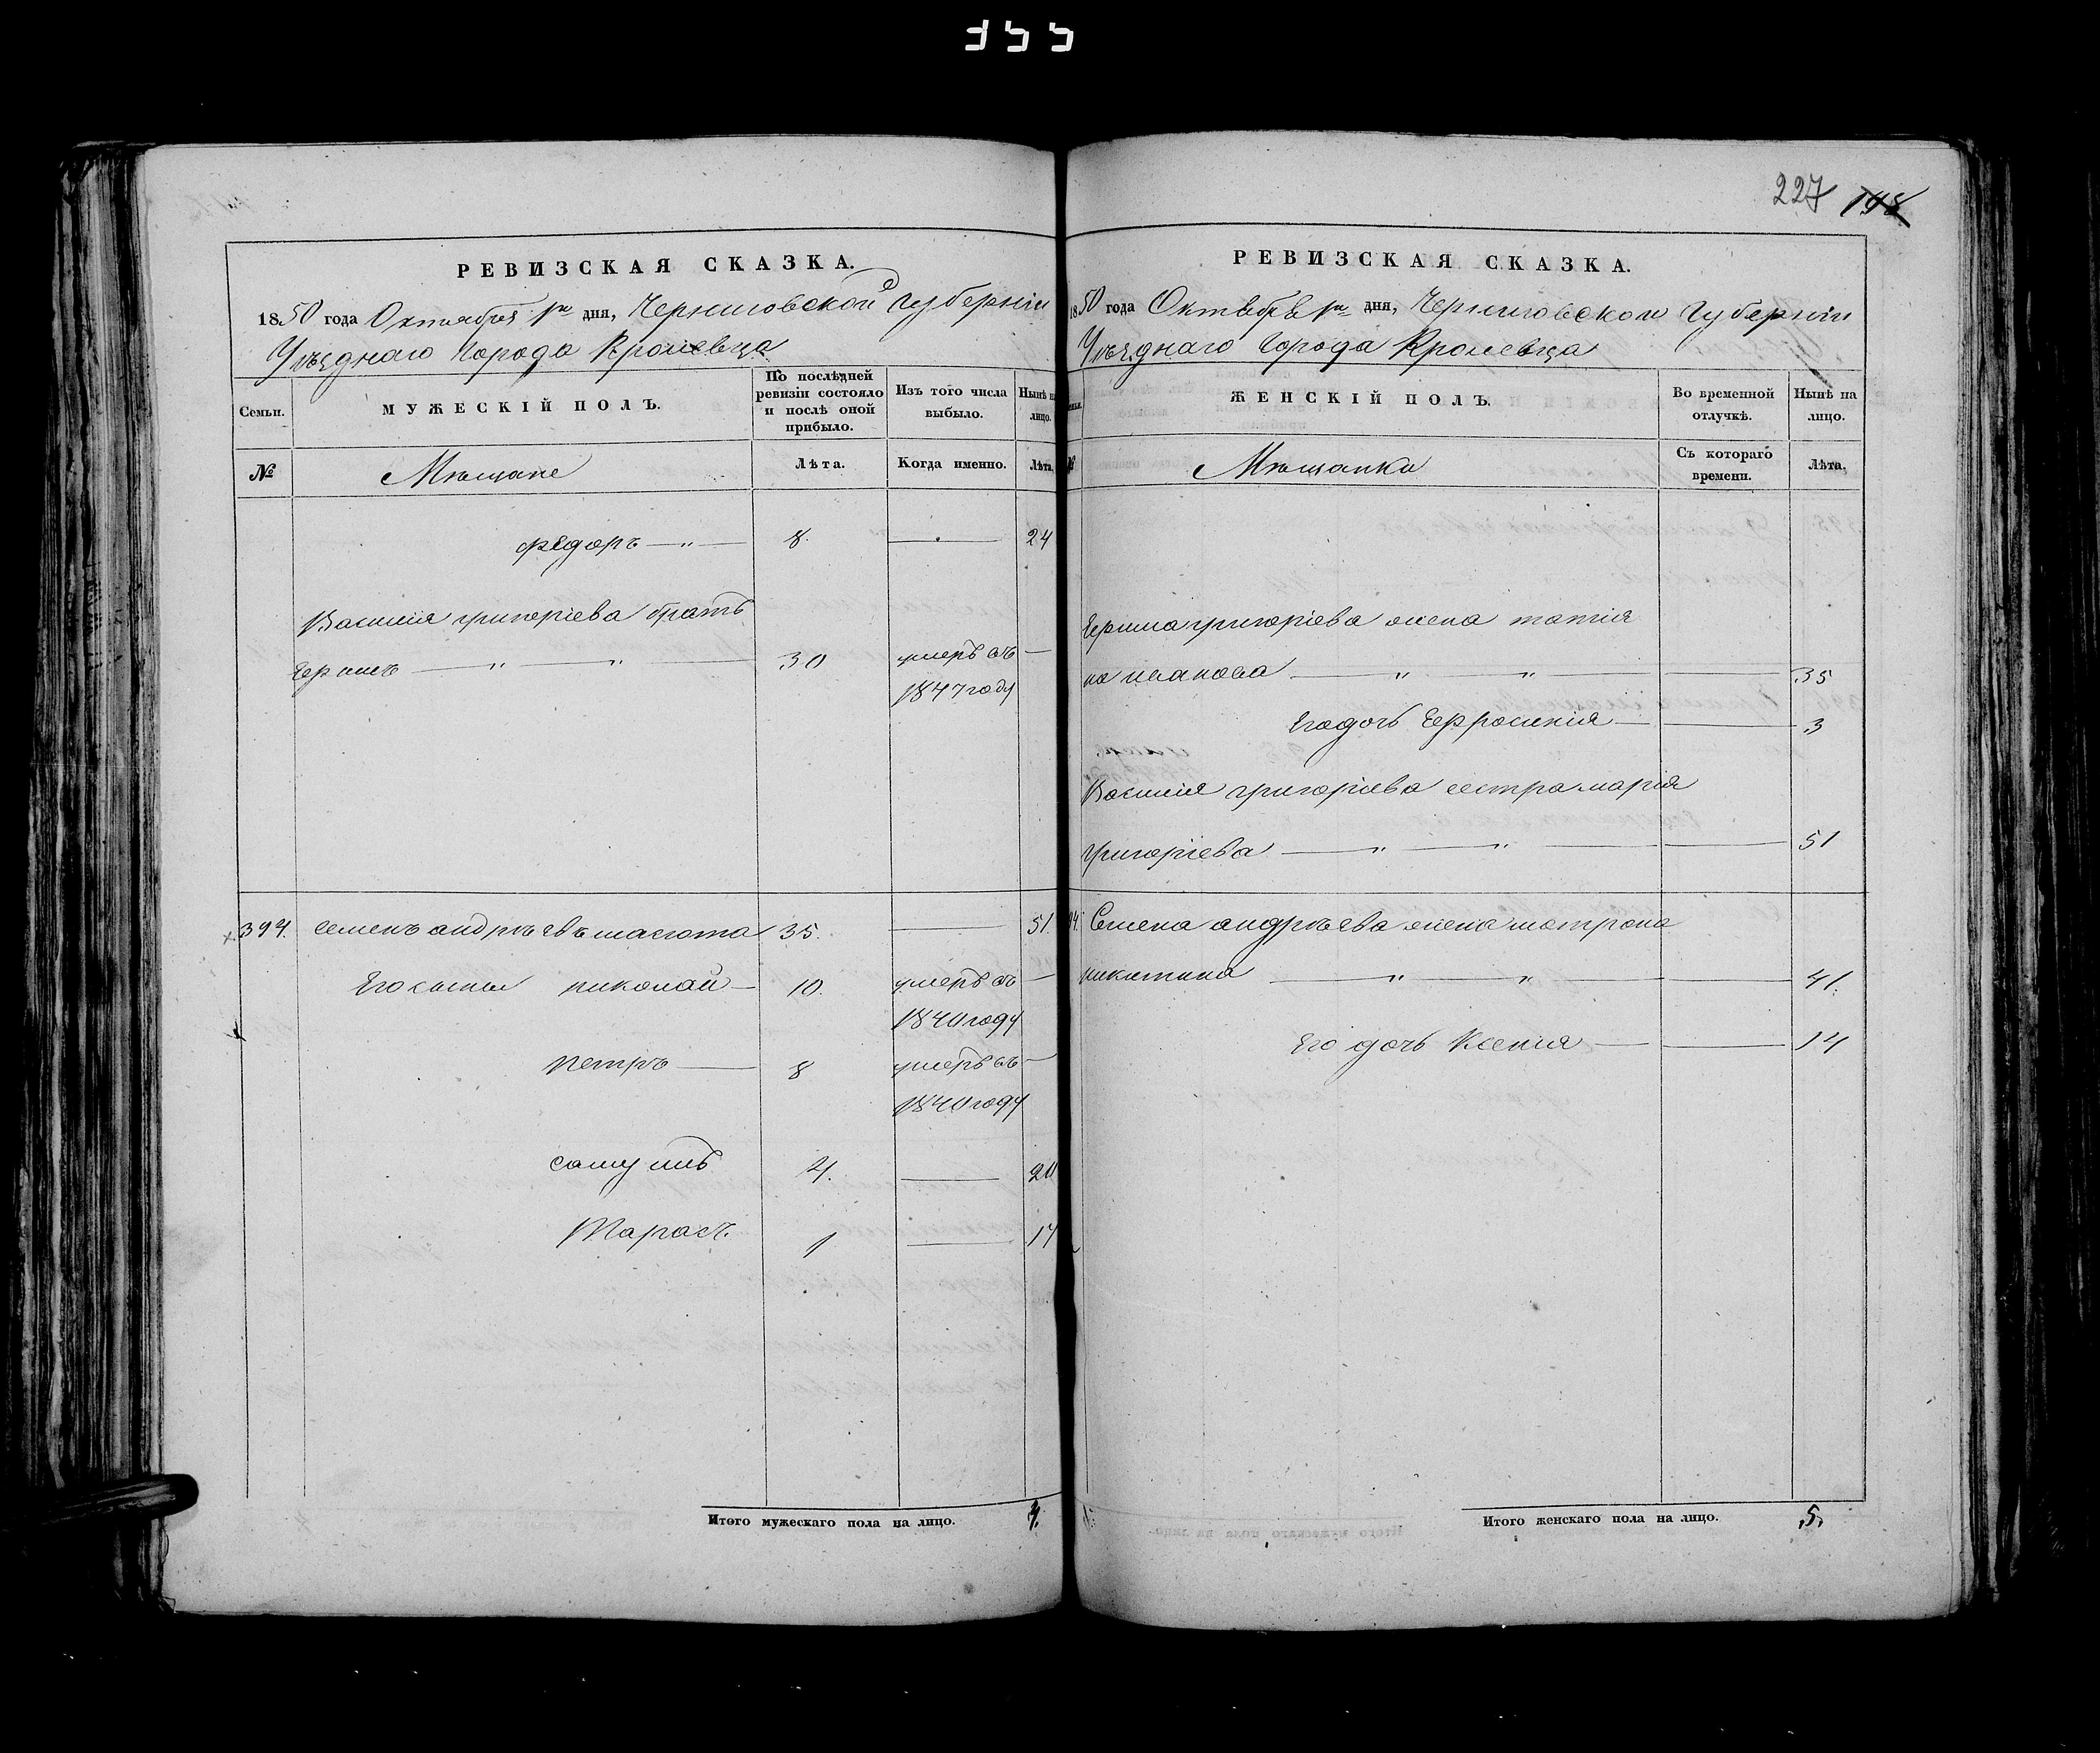 227 198
РЕВИЗСКАЯ СКАЗКА.
1850 года Октября 1го дня, Черниговской Губерніи
Уѣзднаго Города Кролевца
Семьи.
МУЖЕСКІЙ ПОЛЪ.
По послѣдней ревизіи состояло и послѣ оной прибыло.
Изъ того числа выбыло.
Нынѣ на лицо.
№
Мѣщане
Лѣта.
Когда именно.
Лѣта.
Федоръ — „ — 8. — 24
Василия григоріева братъ
Ефимъ — „ — „ — 30 умеръ въ —
1847 году
394. Семенъ андрѣевъ 35. — 51.
Его сыны николай — 10. умеръ въ —
1840 году
петръ — 8 умеръ въ —
1840 году
самуилъ 4. — 20
Тарасъ. 1 — 17
Итого мужескаго пола на лицо. 4.
РЕВИЗСКАЯ СКАЗКА.
1850 года Октября 1го дня, Черниговской Губерніи
Уѣзднаго Города Кролевца
ЖЕНСКІЙ ПОЛЪ.
Во временной отлучкѣ.
Нынѣ на лицо.
№
Мѣщанки
Съ котораго времени.
Лѣта.
Ефима григоріева жена татія
на иванова — „ — „ — 35
Его дочь Ефросинія — 3
Василия григоріева сестра марія
григоріева — „ — „ — 51
94. Семена андрѣева жена матрона
никитина — „ — „ — 41.
Его дочь Ксенія — 14
Итого женскаго пола на лицо. 5.